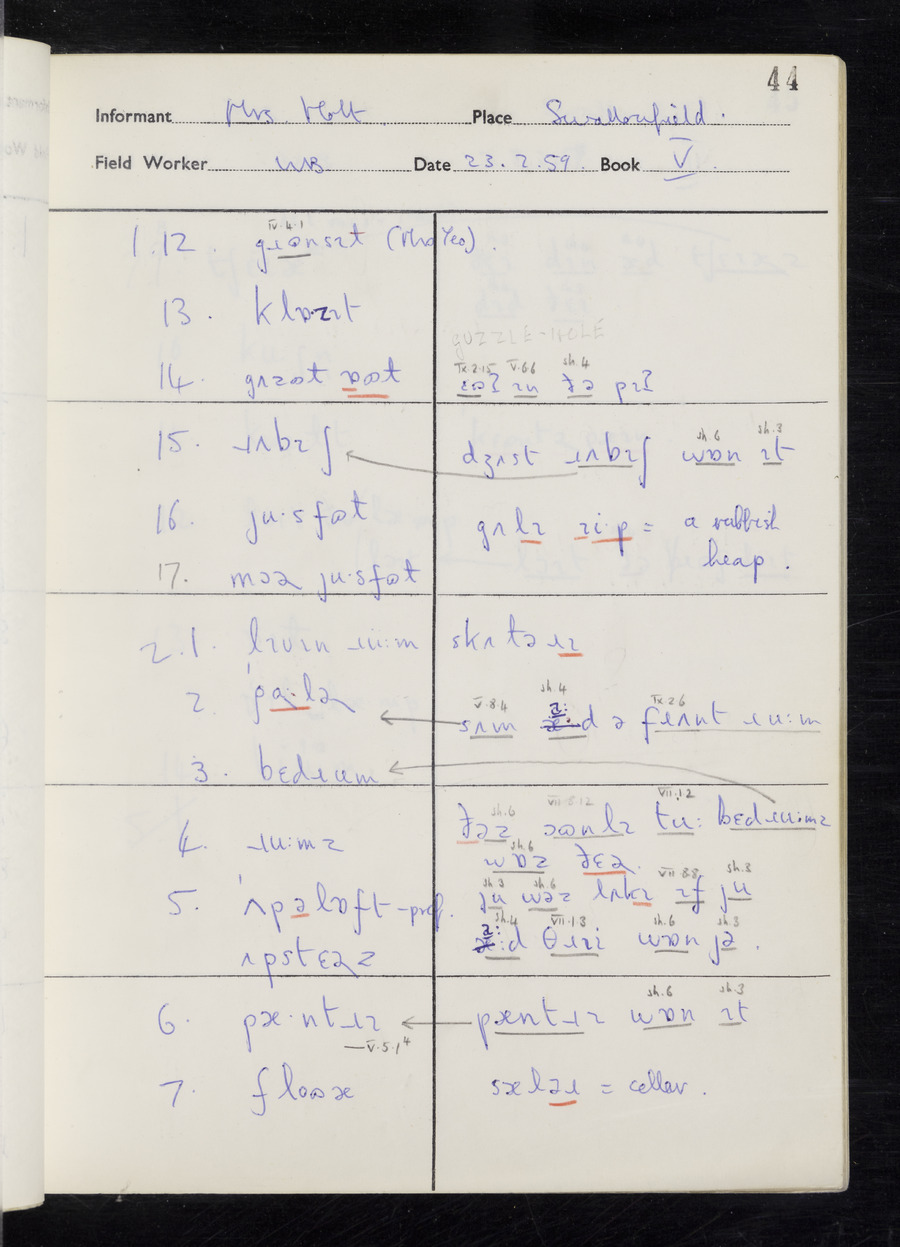 44
Informant Mrs. Holt Place Swallowfield.
Field Worker WB Date 23.2.59. Book V.
IV.4.1
1.12. (Mrs Yeo).
13. klɒzɪt
GUZZLE-HOLE
IX.2.15 V.6.6 sh.4
14. ɪn ðə pɪʔ
sh.6 sh.3
15. ɹʌbɪʃ dʒʌst ɹʌbɪʃ wɒn ɪt
16. ju·sfət = a rubbish
heap.
17. ju·sfət
2.1. lɪvɪn ɹu:m skʌləɹɪ
V.8.4 sh.4 IX.2.6
2. ˈpɑ·lə sʌm d ə fɹʌnt ɹu:m
3. bɛdɹum
sh.6 VII.5.12 VII.1.2
4. ɹu:mz tu: bɛdɹu:mz
sh.6
wɒz ðɛə.
sh.3 sh.6 VII.8.8 sh.3
5. ˈʌpəlɒft -pref. ju wəz ɪf ju
sh.4 VII.1.3 sh.6 sh.3
ʌpstɛəz :d θɹi wɒn jə.
sh.6 sh.3
6. pæ·ntɹɪ pæntɹɪ wɒn ɪt
—V.5.1⁴
7. sɛləɹ = cellar.